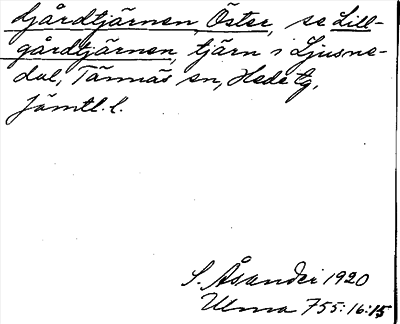 Gårdtjärnen, Öster, se Lill-
gårdtjärnen, tjärn i Ljusne-
dal, Tännäs sn, Hede tg,
Jämtl. l.
S. Åsander 1920
Ulma 755:16:15